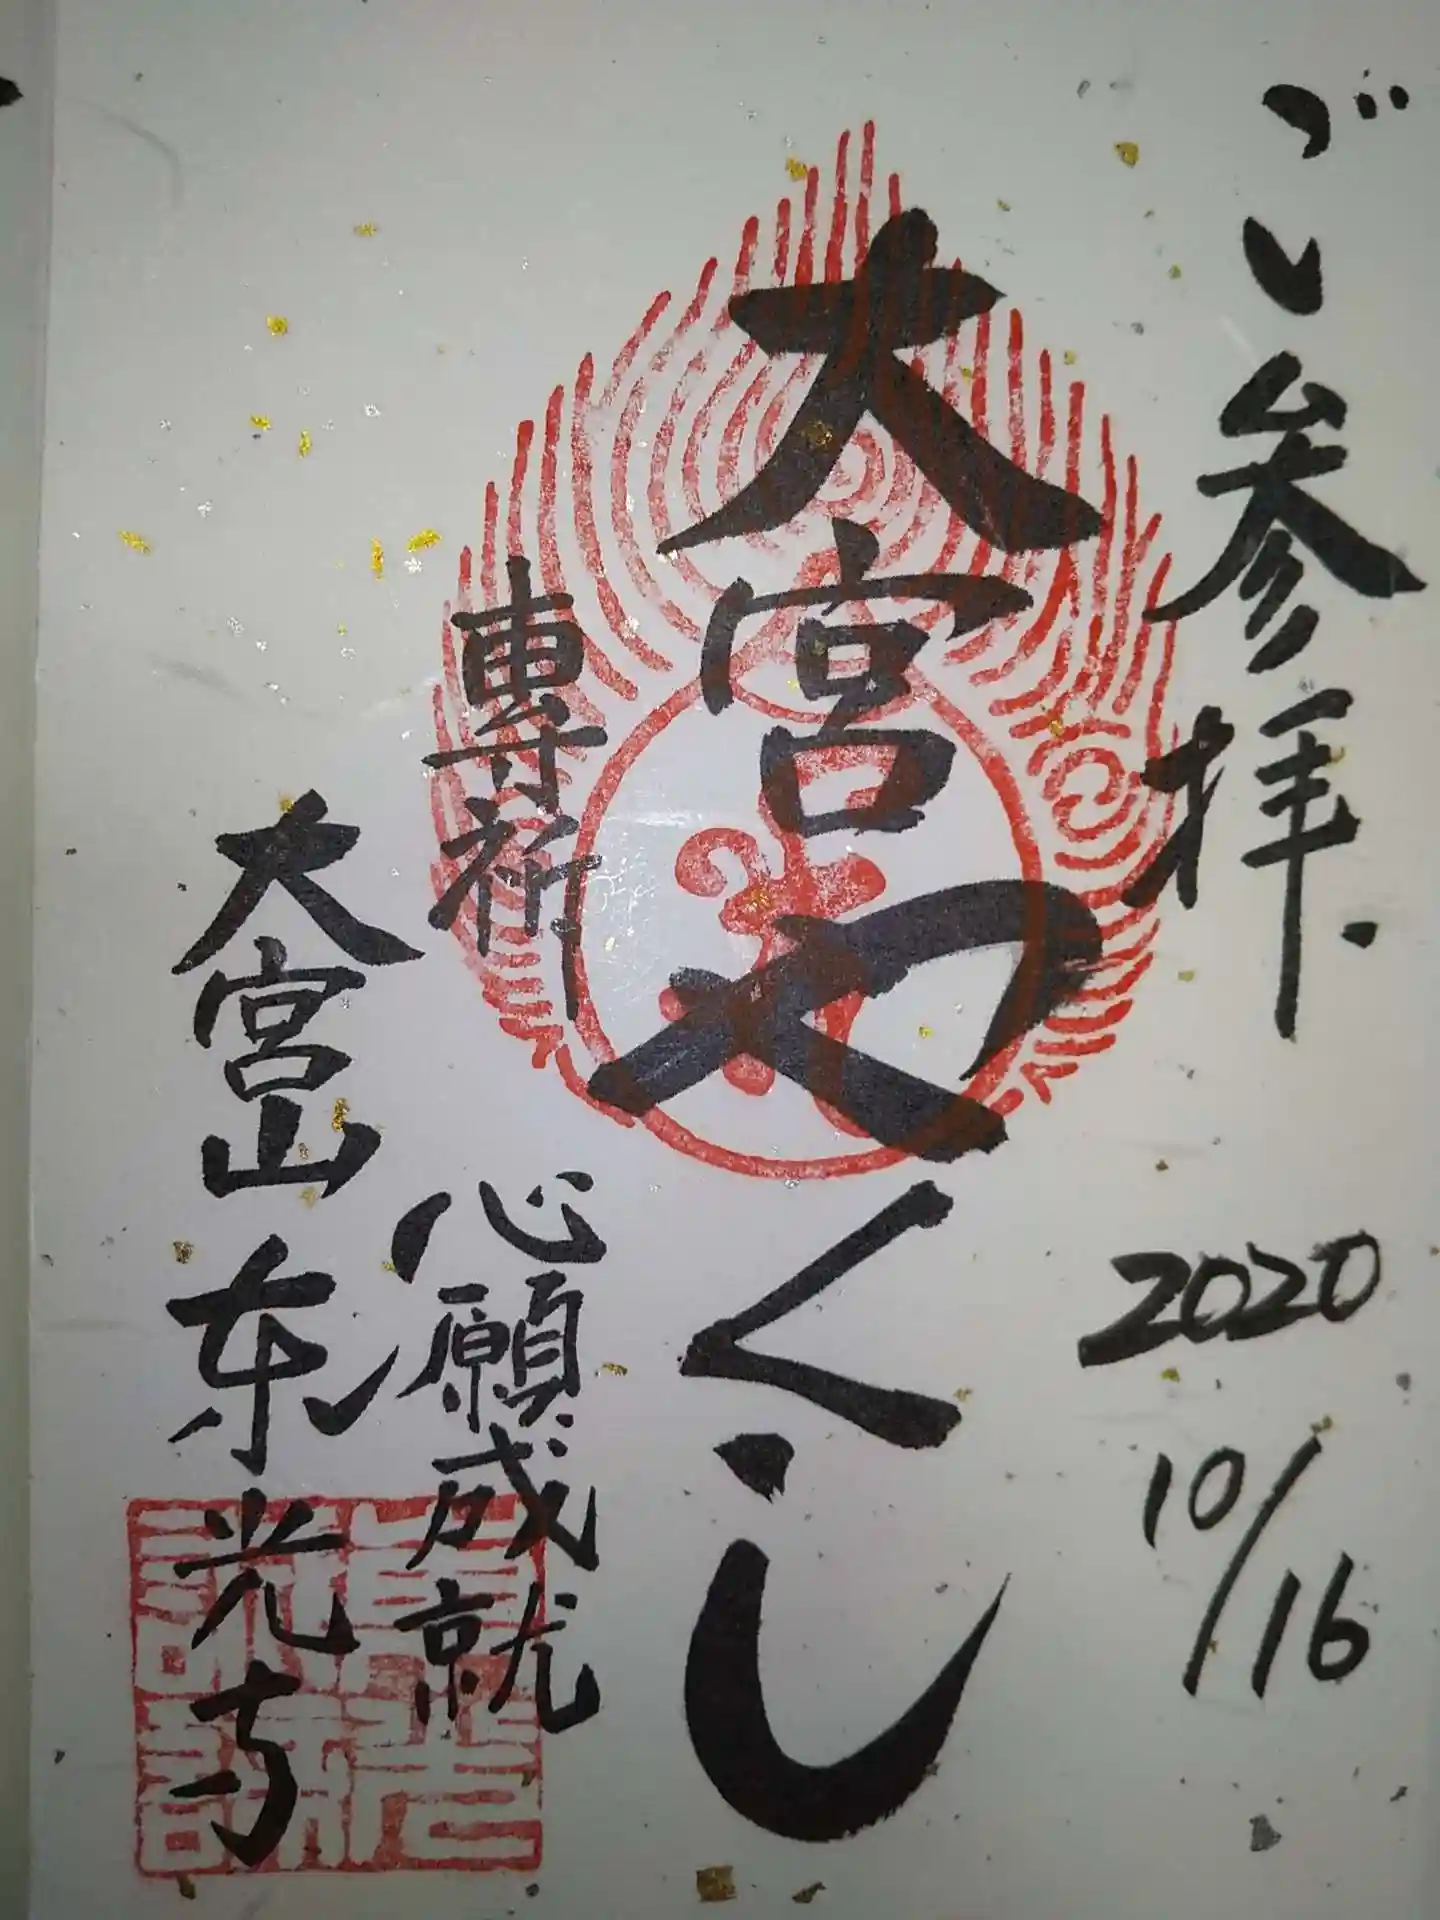 ご参拝
2020
10/16
大宮やくし
専祈
心願成就
大宮山
東光寺